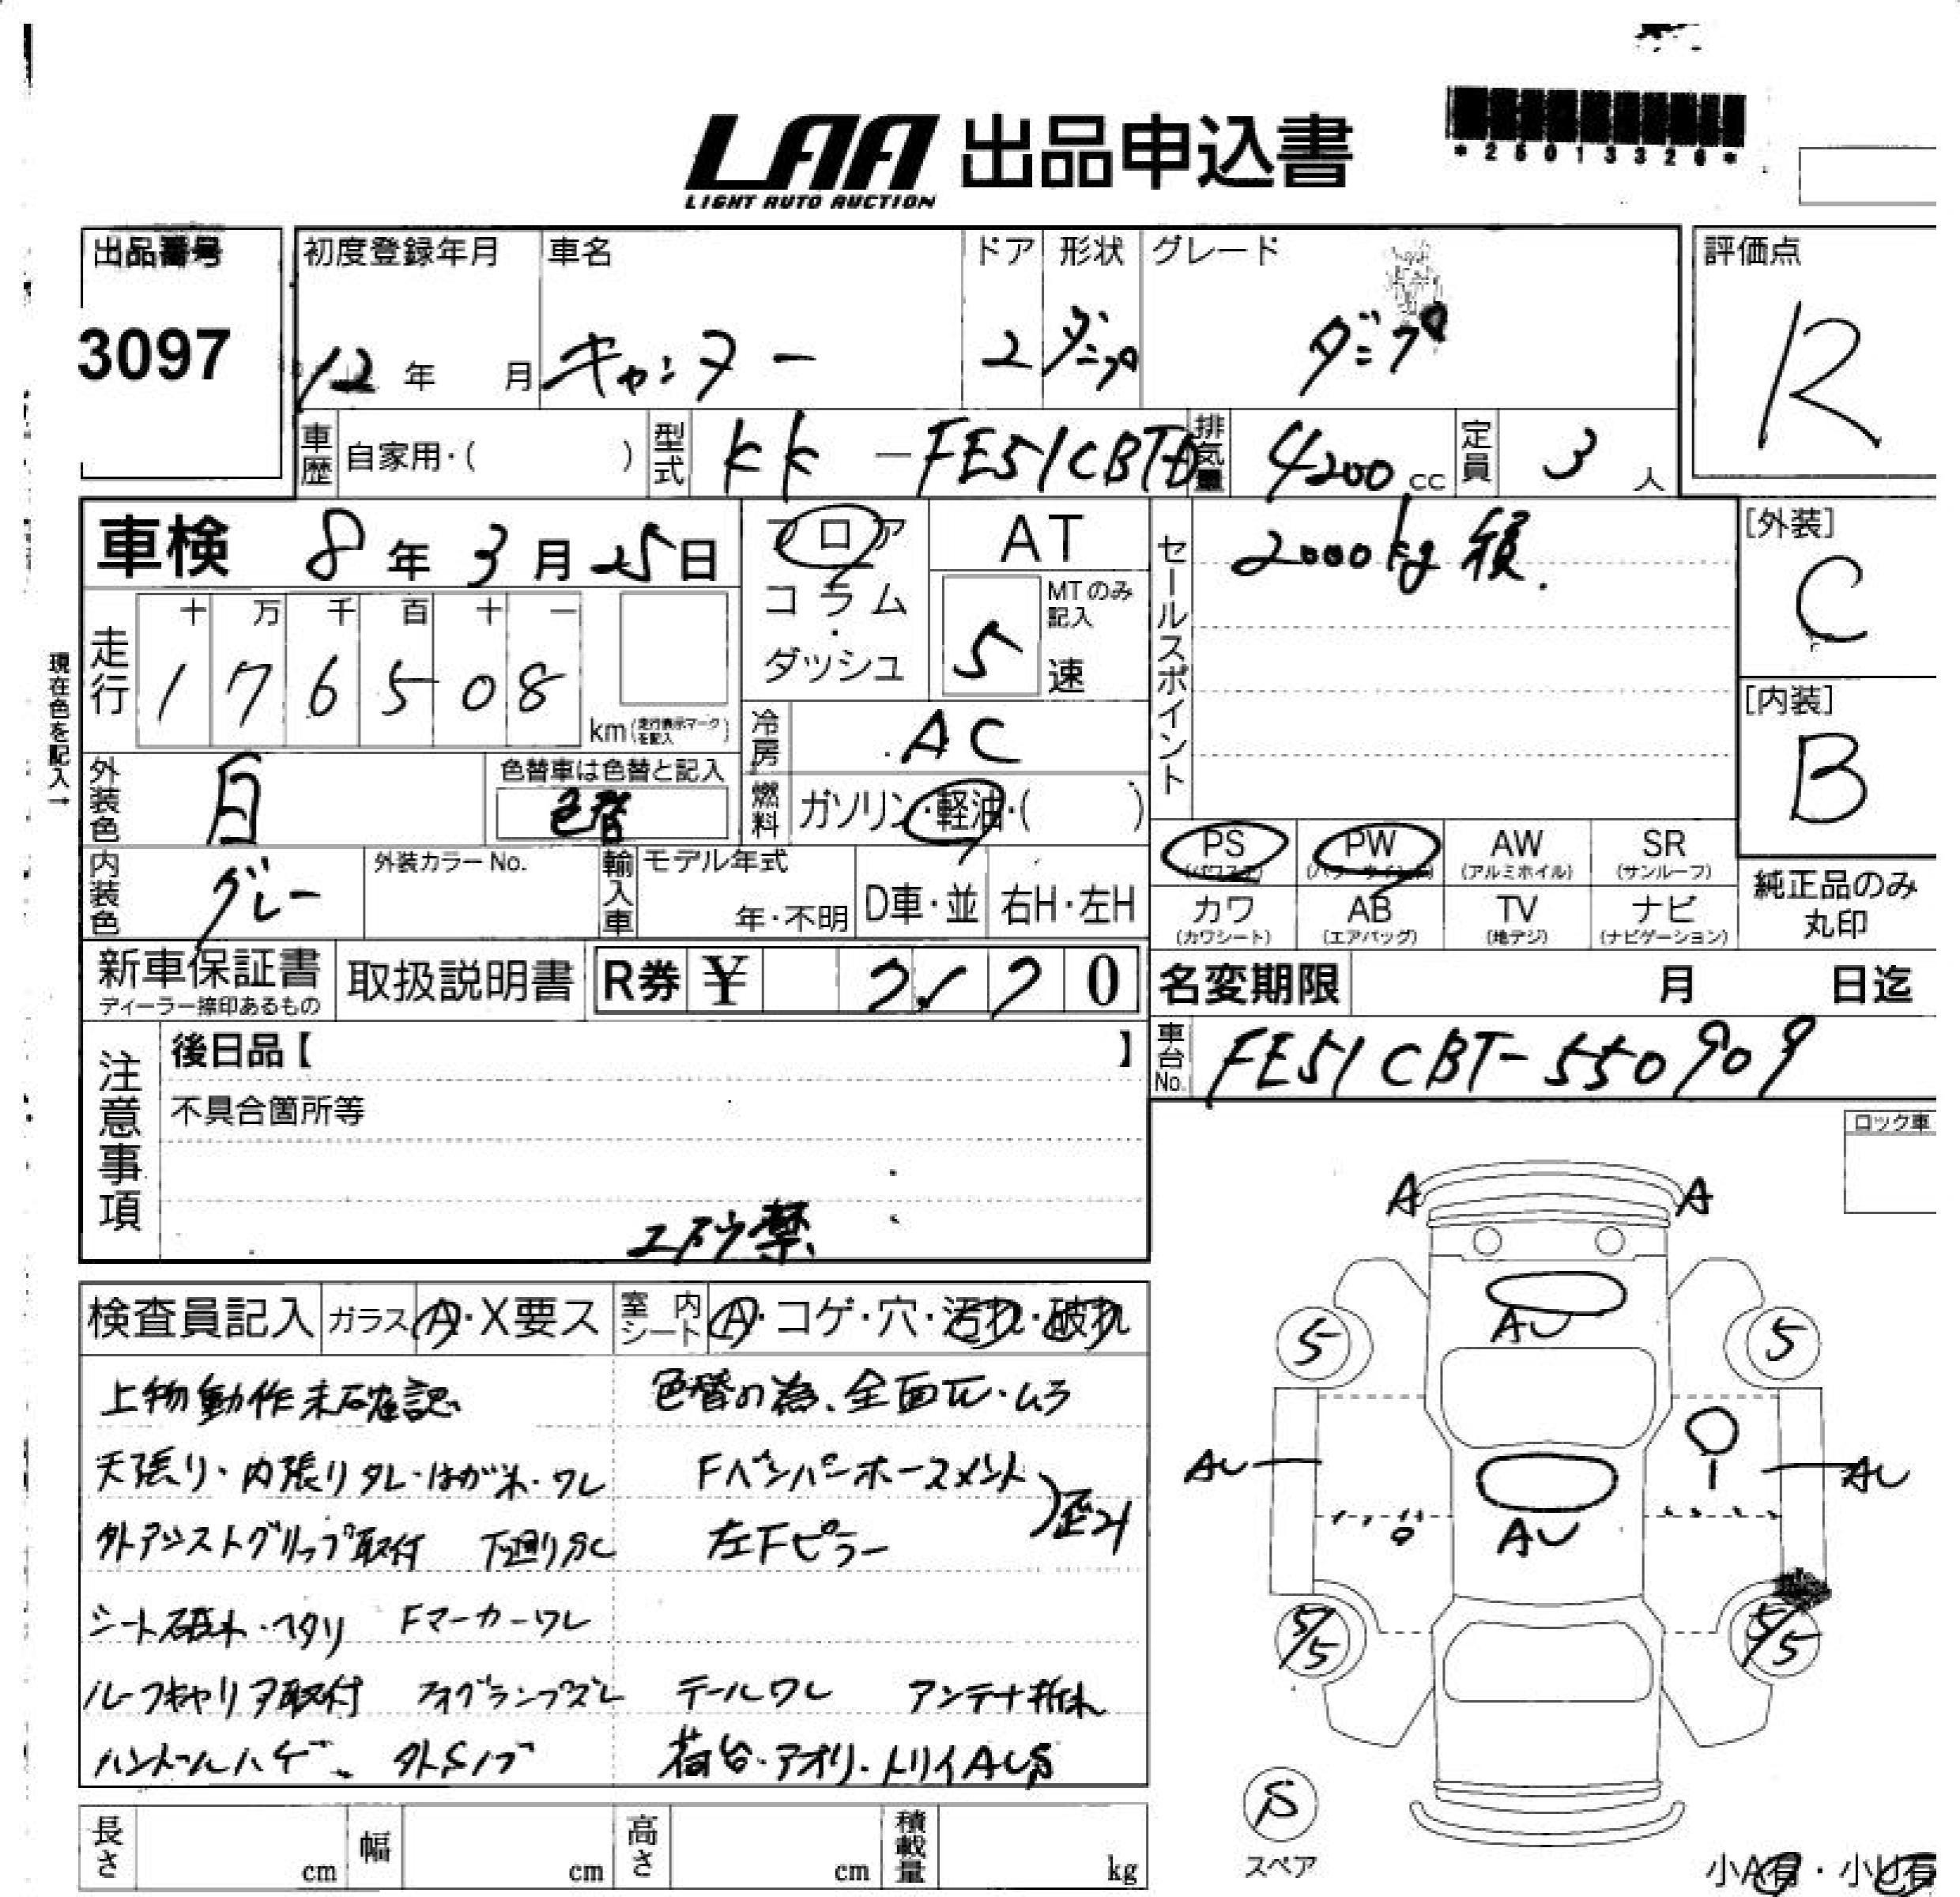 LAA 出品申込書
LIGHT AUTO AUCTION
*25013326*
出品番号 3097
初度登録年月 12年 月
車名 キャンター
ドア 2
形状 ダンプ
グレード ダンプ
評価点 R
車歴 自家用・( )
型式 KK-FE51CBTD
排気量 4200cc
定員 3人
車検 8年3月25日
フロア
コラム
・
ダッシュ
AT
MTのみ記入
5速
セールスポイント
2000kg積.
[外装] C
[内装] B
現在色を記入→
走行 十 万 千 百 十 一
176508
km(走行表示マークを記入)
冷房 AC
燃料 ガソリン・軽油・( )
外装色 白
色替車は色替と記入
色替
内装色 グレー
外装カラーNo.
輸入車 モデル年式
年・不明
D車・並
右H・左H
PS(パワステ) PW(パワーウインドー) AW(アルミホイル) SR(サンルーフ)
カワ(カワシート) AB(エアバッグ) TV(地デジ) ナビ(ナビゲーション)
純正品のみ丸印
新車保証書
ディーラー捺印あるもの
取扱説明書
R券 ¥ 0
名変期限 月 日迄
車台No. FE51CBT-550909
注意事項
後日品【 】
不具合箇所等
検査員記入 ガラス A・X要ス
室内シート A・コゲ・穴・汚れ・破れ
上物動作未確認
色替の為、全面・ムラ
天張り・内張りタレ・はがれ・ワレ
Fバンパーホースメント
左Fピラー
歪み
外アシストグリップ取付
シート破れ・ヘタリ Fマーカーワレ
ルーフキャリア取付 フォグランプズレ
テールワレ アンテナ折れ
ハンドルハゲ 外Sノブ
荷台・アオリ・トリイAUS
長さ cm 幅 cm 高さ cm 積載量 kg
ロック車
A A
AU
5 5
AU AU
AU
5/5 5/5
S
スペア
小A有・小U有